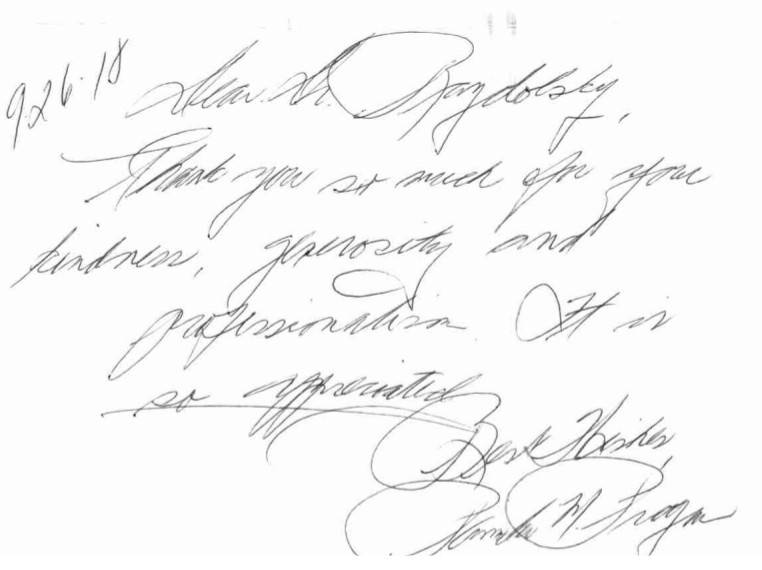 9.26.18
Dear Dr. Razdolsky,
Thank you so much for your
kindness, generosity and
professionalism. It is
so appreciated
Best Wishes,
M.